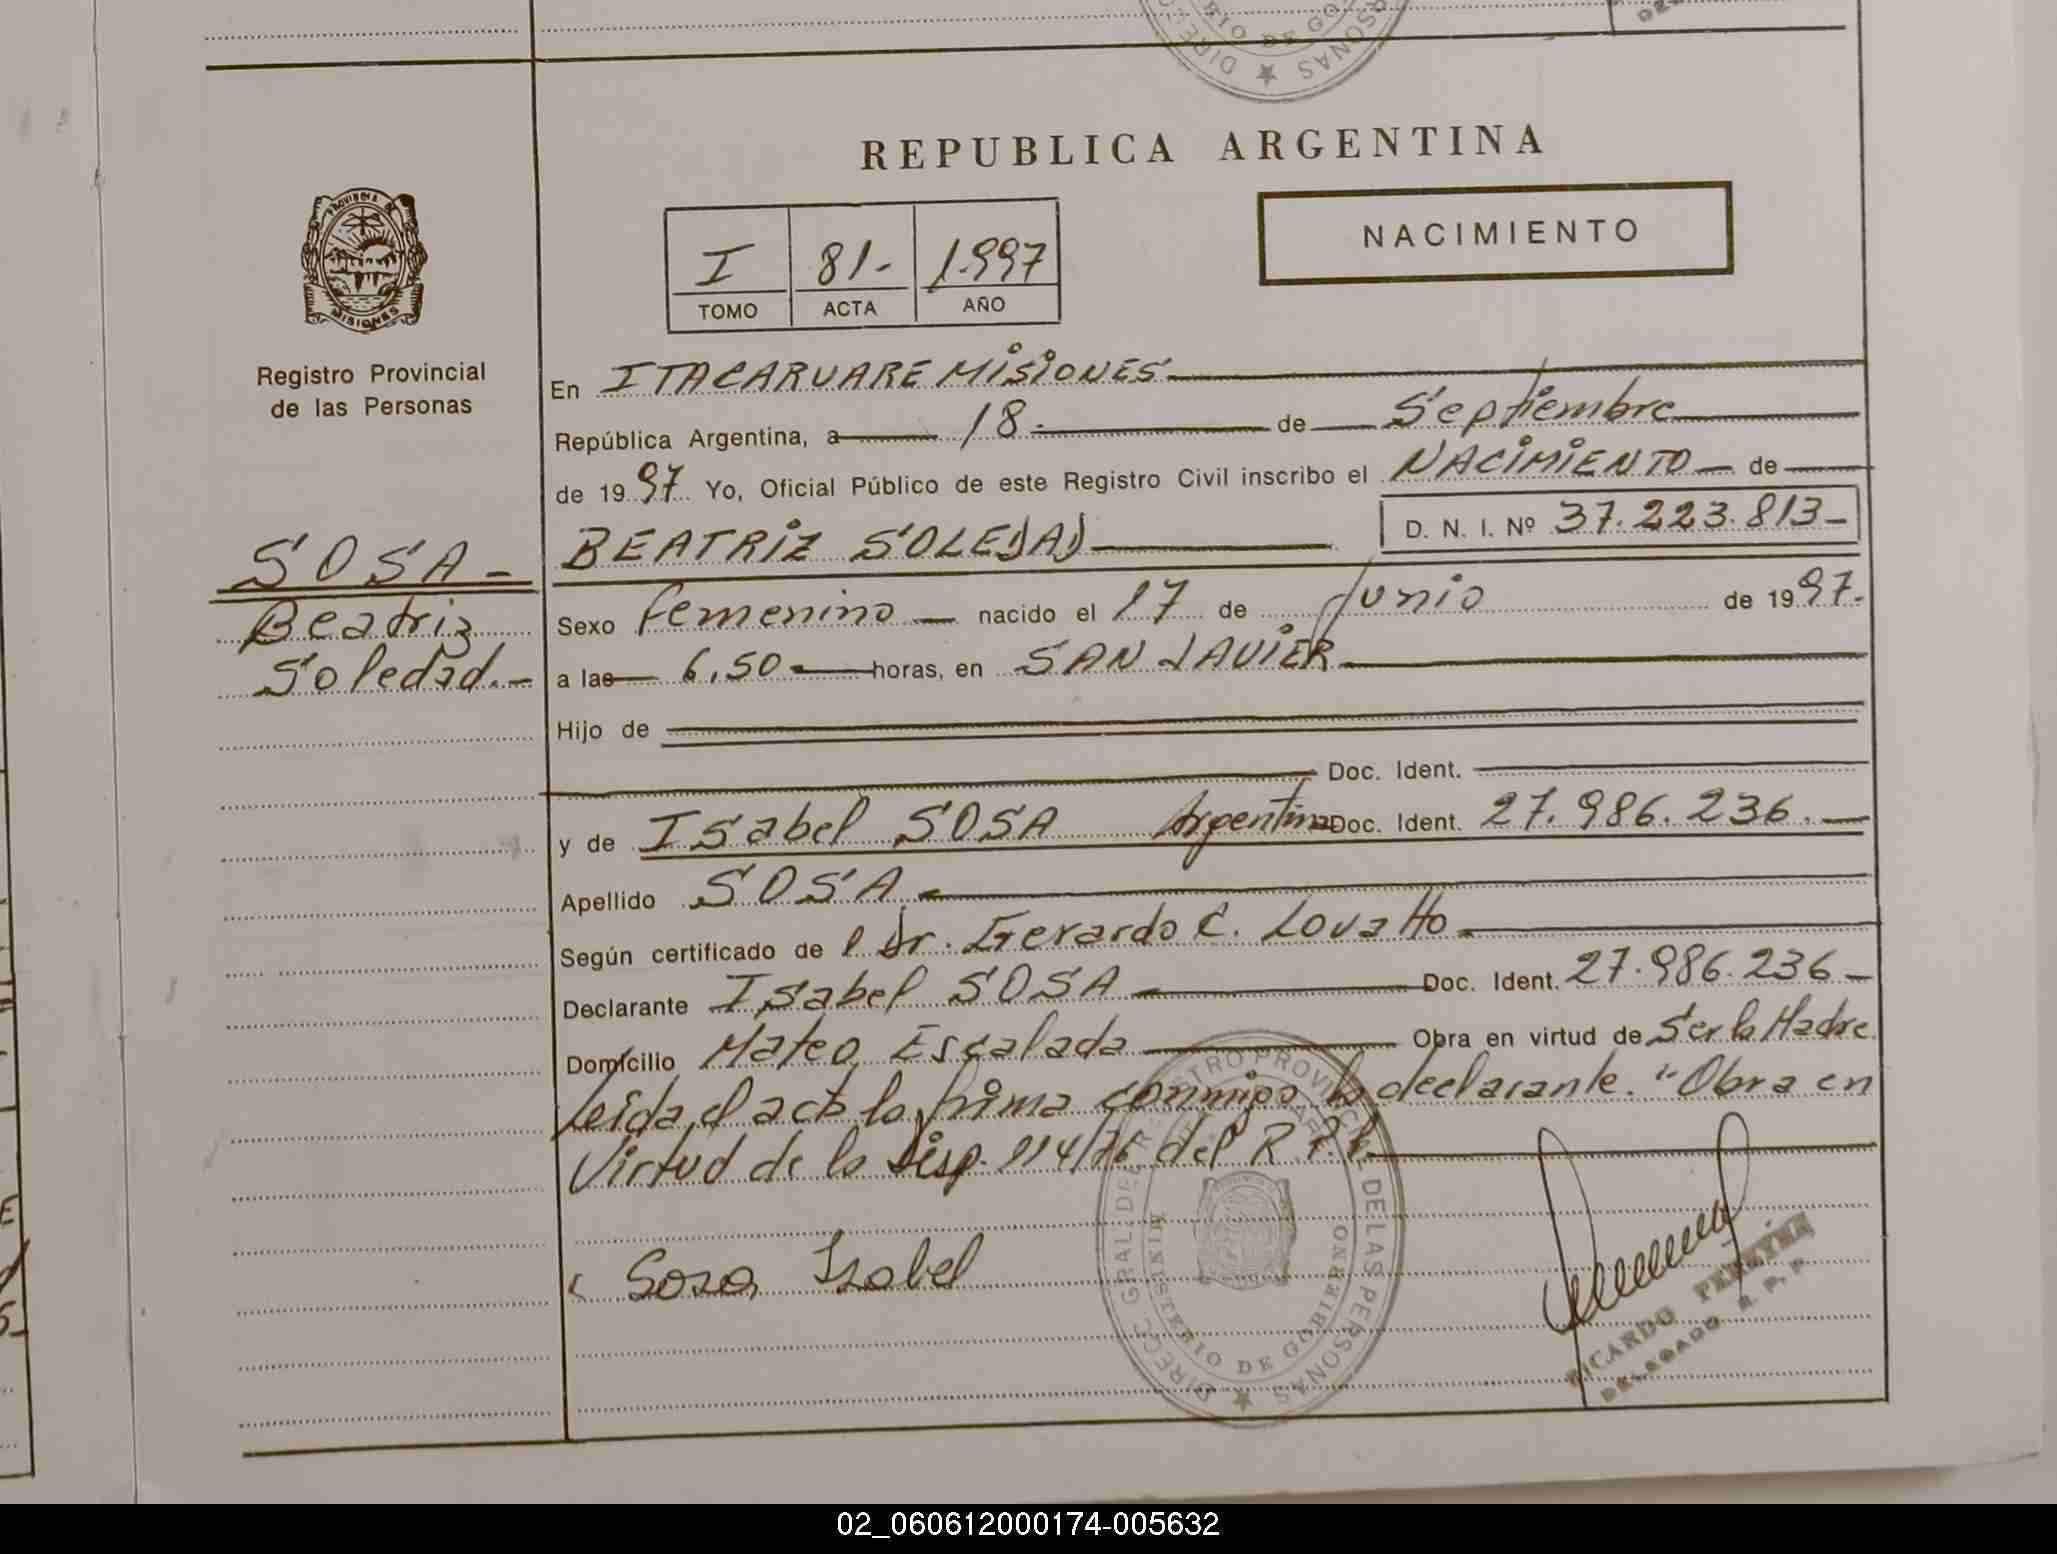 REPUBLICA ARGENTINA
NACIMIENTO
I 81- 1.997
TOMO ACTA AÑO
PROVINCIA DE
MISIONES
Registro Provincial
de las Personas
SOSA -
Beatriz
Soledad.-
En ITACARUARE MISIONES
República Argentina, a 18- de Septiembre
de 1997 Yo, Oficial Público de este Registro Civil inscribo el NACIMIENTO de
BEATRIZ SOLEDAD D. N. I. Nº 37.223.813-
Sexo femenino nacido el 17 de Junio de 1997.
a las 6,50 horas, en SAN JAVIER
Hijo de
Doc. Ident.
y de Isabel SOSA Argentina Doc. Ident. 27.986.236.
Apellido SOSA
Según certificado de l Dr. Gerardo C. Lovatto
Declarante Isabel SOSA Doc. Ident. 27.986.236
Domicilio Mateo Escalada Obra en virtud de Ser la Madre
Leida el acta la firma conmigo la declarante. "Obra en
Virtud de la Disp. 114/76 del R.P.P.
Sosa Isabel
DIRECC GRAL DEL REGISTRO PROVINCIAL DE LAS PERSONAS
MINISTERIO DE GOBIERNO
RICARDO PEREYRA
DELEGADO R. P. P
02_060612000174-005632